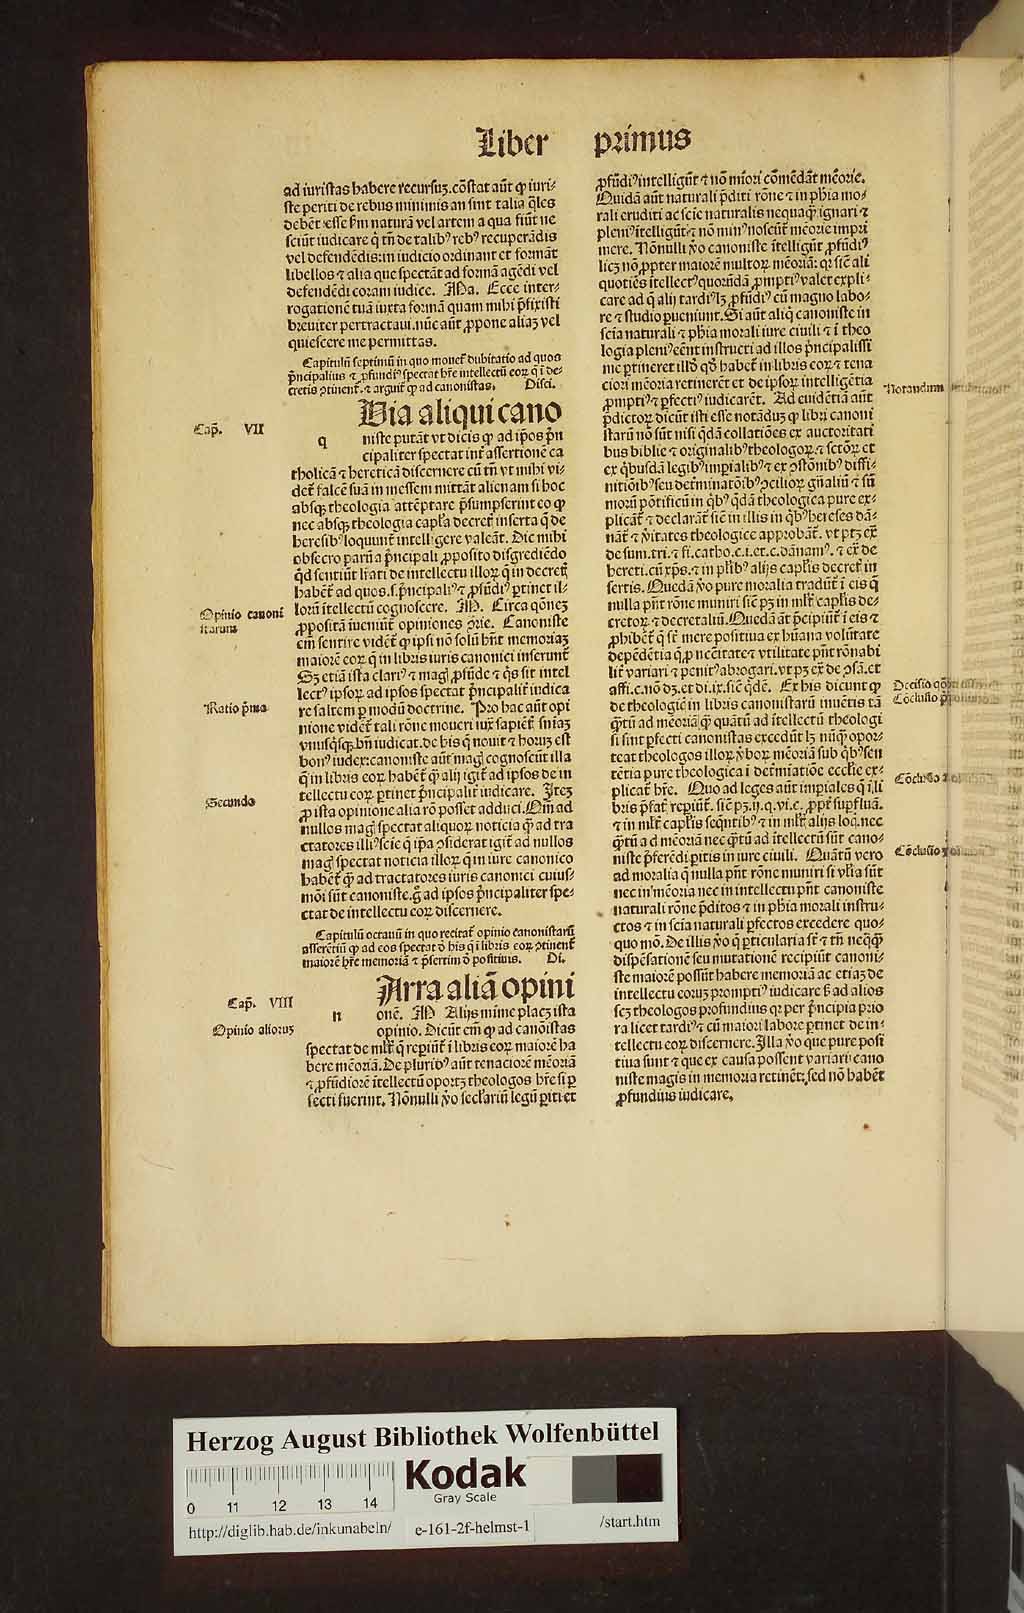 Liber primus
ad iuristas habere recursuʒ. cōstat aūt ꝙ iuri-
ste periti de rebus minimis an sint talia q̄les
debēt esse fm naturā vel artem a qua fiūt ne
sciūt iudicare q̄ tn̄ de talibꝰ rebꝰ recuperādis
vel defendēdis: in iudicio ordinant et formāt
libellos ⁊ alia que spectāt ad formā agēdi vel
defendēdi coram iudice. Ma. Ecce inter-
rogationē tuā iuxta formā quam mihi p̄fixisti
breuiter pertractaui. nūc aūt ꝓpone aliaʒ vel
quiescere me permittas.
Capitulū septimū in quo mouet̄ dubitatio ad quos
p̄ncipalius ⁊ ꝓfundiꝰ spectat hr̄e intellectū eoꝝ q̄ ī de-
cretis ꝯtinent̄. ⁊ arguit̄ ꝙ ad canonistas. Disci.
Cap̄. VII
Via aliqui cano
q niste putāt vt dicis ꝙ ad ip̄os p̄n
cipaliter spectat int̄ assertionē ca
tholicā ⁊ hereticā discernere cū tn̄ vt mihi vi-
det̄ falcē suā in messem mittāt alienam si hoc
absqꝫ theologia attēptare p̄sumpserint eo ꝙ
nec absqꝫ theologia capl̄a decret̄ inserta q̄ de
heresibꝰ loquunt̄ intelligere valeāt. Dic mihi
obsecro parū a p̄ncipali ꝓposito disgrediēdo
qd̄ sentiūt lr̄ati de intellectu illoꝝ q̄ in decret̄
habēt̄ ad quos .s. p̄ncipaliꝰ ⁊ ꝓfūdiꝰ ꝑtinet il-
Opinio canoni
staruꝫ
lorū ītellectū cognoscere. M. Circa qōneʒ
ꝓpositā īueniūt̄ opiniones ꝯrie. Canoniste
em̄ sentire vidēt̄ ꝙ ip̄i nō solū hn̄t memoriaʒ
maiorē eoꝝ q̄ in libris iuris canonici inserunt̄
Sʒ etiā ista clariꝰ ⁊ magꝭ ꝓfūde ⁊ q̄s sit intel
lectꝰ ipsoꝝ ad ipsos spectat p̄ncipalit̄ iudica
Ratio p̄ma
re saltem ꝑ modū doctrine. Pro hac aūt opi
nione vidēt̄ tali rōne moueri iuꝝ sapiēt̄ sn̄iaʒ
vnusq̄sqꝫ bn̄ iudicat. de his q̄ nouit ⁊ horuʒ est
bonꝰ iudex: canoniste aūt magꝭ cognoscūt illa
q̄ in libris eoꝝ habēt̄ q̄ꝫ alij igit̄ ad ipsos de in
tellectu eoꝝ ꝑtinet p̄ncipalit̄ iudicare. Iteʒ
Secundo
ꝓ ista opinione alia rō posset adduci. Qm̄ ad
nullos magꝭ spectat aliquoꝝ noticia q̄ꝫ ad tra
ctatores illiꝰ scie q̄ ip̄a ꝯsiderat igit̄ ad nullos
magꝭ spectat noticia illoꝝ q̄ in iure canonico
habēt̄ q̄ꝫ ad tractatores iuris canonici cuius-
mōi sūt canoniste. g̊ ad ipsos p̄ncipaliter spe-
ctat de intellectu eoꝝ discernere.
Capitulū octauū in quo recitat̄ opinio canonistarū
asserētiū ꝙ ad eos spectat ꝺ his q̄ ī libris eoꝝ ꝯtinent̄
maiorē hr̄e memoriā ⁊ p̄sertim ꝺ positiuis. Di.
Cap̄. VIII
Narra aliā opini
n onē. M Alijs mīme placʒ ista
Opinio alioruʒ
opinio. Dicūt em̄ ꝙ ad canōistas
spectat de ml̄t̄ q̄ repiūt̄ ī libris eoꝝ maiorē ha
bere mēoriā. De pluribꝰ aūt tenaciorē mēoriā
⁊ ꝓfūdiorē ītellectū oportʒ theologos hr̄e si ꝑ
fecti fuerint. Nōnulli v̄o scl̄ariū legū ꝑiti et
ꝓfūdiꝰ intelligūt ⁊ nō miori cōmēdāt mēorie.
Quidā aūt naturali p̄diti rōne ⁊ in ph̄ia mo-
rali eruditi ac scie naturalis nequaq̄ꝫ ignari ⁊
pleniꝰ ītelligūt ⁊ nō minꝰ noscūt mēorie impri
mere. Nōnulli v̄o canoniste ītelligūt ꝓfūdiꝰ
licʒ nō ꝓpter maiorē multoꝝ mēoriā: qr sic̄ ali
quotiēs ītellectꝰ quorūdā ꝓmptiꝰ valet expli-
care ad q̄ alij tardiꝰ lʒ ꝓfūdiꝰ cū magno labo-
re ⁊ studio ꝑueniunt. Si aūt aliq̄ canoniste in
scia naturali ⁊ ph̄ia morali iure ciuili ⁊ ī theo
logia pleniꝰ eēnt instructi ad illos p̄ncipalissi
me ꝑtineret illd̄ qd̄ habet̄ in libris eoꝝ ⁊ tena
ciori mēoria retinerēt et de ipsoꝝ intelligētia
Notandum
ꝓmptiꝰ ⁊ ꝑfectiꝰ iudicarēt. Ad euidētiā aūt
p̄dictoꝝ dicūt isti esse notāduʒ ꝙ libri canoni
starū nō sūt nisi qd̄ā collatiōes ex auctoritati
bus biblie ⁊ originalibꝰ theologoꝝ ⁊ sctōꝝ et
ex q̄busdā legibꝰ imꝑialibꝰ ⁊ ex ꝯstōnibꝰ diffi-
nitiōibꝰ seu det̄minatōibꝰ ꝯcilioꝝ gn̄aliū ⁊ sū
morū pōtificū in q̄bꝰ qd̄ā theologica pure ex-
plicāt̄ ⁊ declarāt̄ sic̄ in illis in q̄bꝰ hereses dā-
nāt̄ ⁊ v̄itates theologice approbāt̄. vt ptʒ ex̄
de sum. tri. ⁊ fi. catho. c. i. et. c. dānamꝰ. ⁊ ex̄ de
hereti. cū xp̄s. ⁊ in pl̄ibꝰ alijs capl̄is decret̄ in
sertis. Quedā v̄o pure moralia tradūt̄ ī eis q̄
nulla pn̄t rōne muniri sic̄ pʒ in ml̄t̄ capl̄is de-
cretoꝝ ⁊ decretaliū. Quedā āt p̄cipiūt̄ ī eis ⁊
ꝓhibēt̄ q̄ st̄ mere positiua ex hūana volūtate
depēdētia q̄ ꝓ nc̄citate ⁊ vtilitate pn̄t rōnabi
lit̄ variari ⁊ penitꝰ abrogari. vt pʒ ex̄ de ꝯsā. et
Decisio
affi. c. nō dʒ. et di. ix. sic̄ q̄dē. Ex his dicunt ꝙ
Cōclusio
de theologie in libris canonistarū inuētis tā
q̄tū ad mēoriā q̄ꝫ quātū ad ītellectū theologi
si sint ꝑfecti canonistas excedūt lʒ nūq̄ꝫ opor-
teat theologos illoꝝ v̄boꝝ mēoriā sub q̄bꝰ sen
tētia pure theologica ī det̄miatiōe ecclie ex-
Cōclusio
plicat̄ hr̄e. Quo ad leges aūt impiales q̄ ī li
bris p̄fat̄ repiūt̄. sic̄ pʒ .ij. q. vi. c. ꝓpt̄ supfluā.
⁊ in ml̄t̄ capl̄is seq̄ntibꝰ ⁊ in ml̄t̄ alijs loq̄. nec
q̄tū ad mēoriā nec q̄tū ad ītellectū sūt cano-
Cōclusio
niste p̄ferēdi ꝑitis in iure ciuili. Quātū vero
ad moralia q̄ nulla pn̄t rōne muniri si vl̄ia sūt
nec in mēoria nec in intellectu pn̄t canoniste
naturali rōne p̄ditos ⁊ in ph̄ia morali instru-
ctos ⁊ in scia naturali ꝑfectos excedere quo-
quo mō. De illis v̄o q̄ ꝑticularia st̄ ⁊ tn̄ neq̄q̄ꝫ
dispēsationē seu mutationē recipiūt canoni-
ste maiorē possūt habere memoriā ac etiaʒ de
intellectu eoruʒ promptiꝰ iudicare sʒ ad alios
scʒ theologos profundius qr per p̄ncipia prio
ra licet tardiꝰ ⁊ cū maiori labore ꝑtinet de in-
tellectu eoꝝ discernere. Illa v̄o que pure posi
tiua sunt ⁊ que ex causa possent variari: cano
niste magis in memoria retinēt: sed nō habēt
ꝓfundius iudicare.
Herzog August Bibliothek Wolfenbüttel
Kodak
Gray Scale
0 11 12 13 14
http://diglib.hab.de/inkunabeln/ e-161-2f-helmst-1 /start.htm